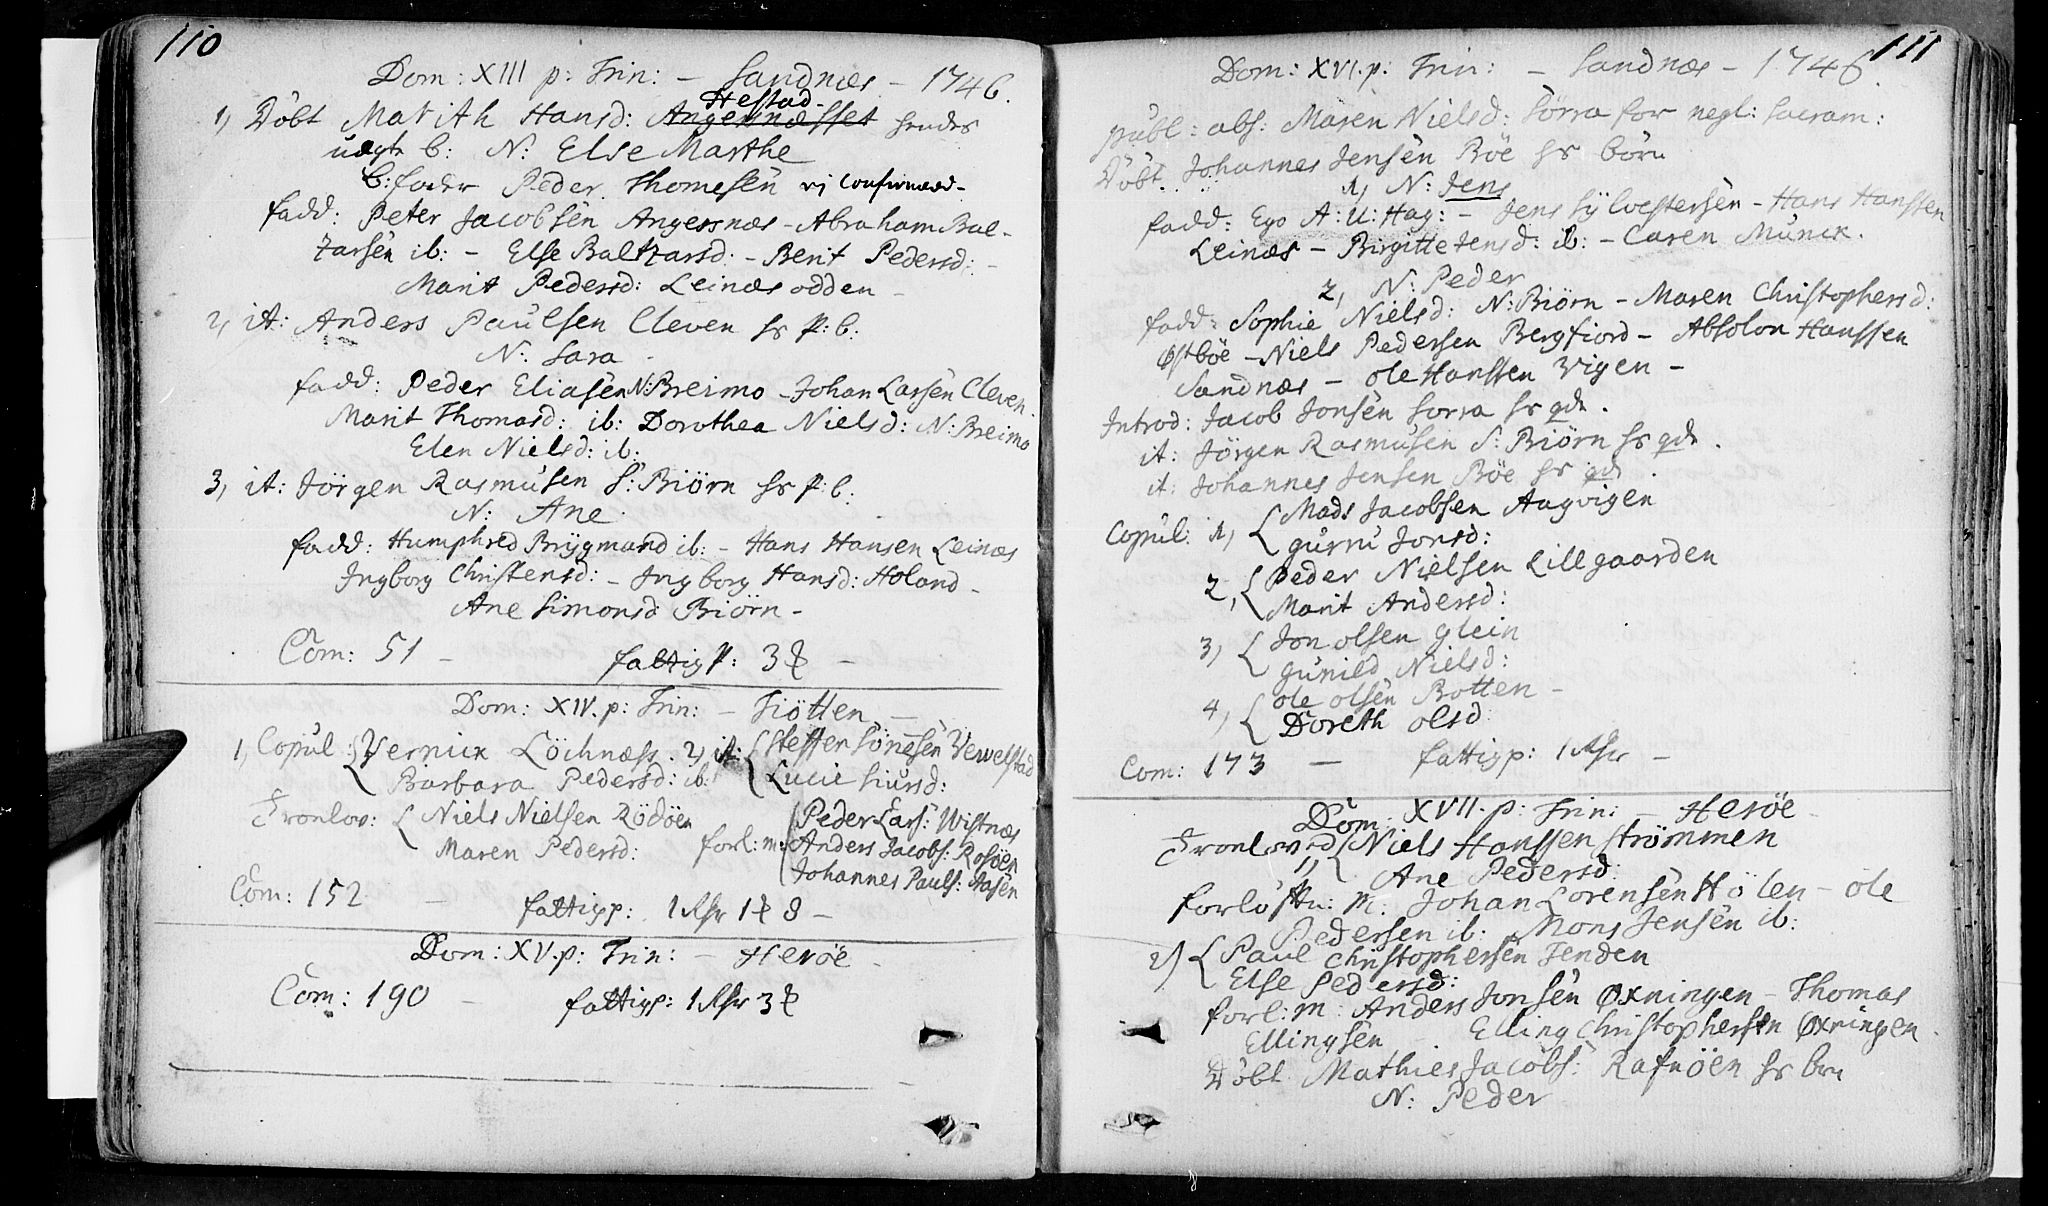 110
Dom: XIII p: Trin: – Sandnæs – 1746.
Hestad-
1, Döbt Marith Hansd: Angersnæsset hendes
uægte b: N: Else Marthe
B:fader Peder Thomesen ej confirmered-
fadd: Peter Jacobsen Angersnæs – Abraham Bal-
tzarsen ib: – Else Baltzarsd: – Berit Pedersd: –
Marit Pedersd: Leinæs odden –
2, it: Anders Paulsen Cleven hs p: b:
N: Sara –
fadd: Peder Eliasen N: Breimo – Johan Larsen Cleven.
Marit Thomasd: ib: Dorothea Nielsd: N: Breimo
Elen Nielsd: ib:
3, it: Jörgen Rasmusen S: Biörn hs p: b:
N: Ane
fadd: Humphred Brÿgmand ib: – Hans Hansen Leinæs
Ingborg Christensd: – Ingborg Hansd: Holand –
Ane Simonsd Biörn –
Com: 51 – fattigp: 3
Dom: XIV. p: Trin: – Tiötten –
1, Copul: { Vernick Löchnæss. 2, it: { Steffen Sönesen Vevelstad
Barbara Pedersd: ib: Lucie Siursd:
Tronlov: { Niels Nielsen Rödöen forl: m: { Peder Lars: Wistnæs
Maren Pedersd: Anders Jacobs: Rosöen
Johannes Pauls: Aasen
Com: 152 – fattigp: 1 8 –
Dom: XV. p: Trin: – Heröe –
Com: 190 – fattigp: 1 3
111
Dom: XVI. p: Trin: – Sandnæs – 1746.
publ: abs: Maren Nielsd: Sörra for negl: sacram:
Döbt Johannes Jensen Böe hs börn
1, N: Jens
fadd: Ego A: U: Hag: – Jens Sÿlvestersen – Hans Hanssen
Leinæs – Birgitte Jensd: ib: – Caren Munck.
2, N: Peder
fadd: Sophie Nielsd: N: Biörn – Maren Christophersd:
Östböe – Niels Pedersen Bergfiord – Absolon Hanssen
Sandnæs – Ole Hanssen Vigen –
Introd: Jacob Jonsen Sorra hs qde.
it: Jörgen Rasmusen S: Biörn hs qde.
it: Johannes Jensen Böe hs qde.
Copul: 1, { Mads Jacobsen Aagvigen
Gurru Jonsd:
2, { Peder Nielsen Lillgaarden
Marit Andersd:
3, { Jon Olsen Glein
Gunild Nielsd:
4, { Ole Olsen Botten –
Doreth Olsd:
Com: 173 – fattigp: 1 –
Dom: XVII. p: Trin: – Heröe –
Tronloved 1, { Niels Hanssen Strömmen
Ane Pedersd:
forlöftn: M: Johan Lorensen Hölen – Ole
Pedersen ib: Mons Jensen ib:
2, { Paul Christophersen Tenden
Else Pedersd:
forl: m: Anders Jonsen Öxningen – Thomas
Ellingsen – Elling Christophersen Öxningen.
Döbt Mathies Jacobs: Rafnöen hs brn
N: Peder